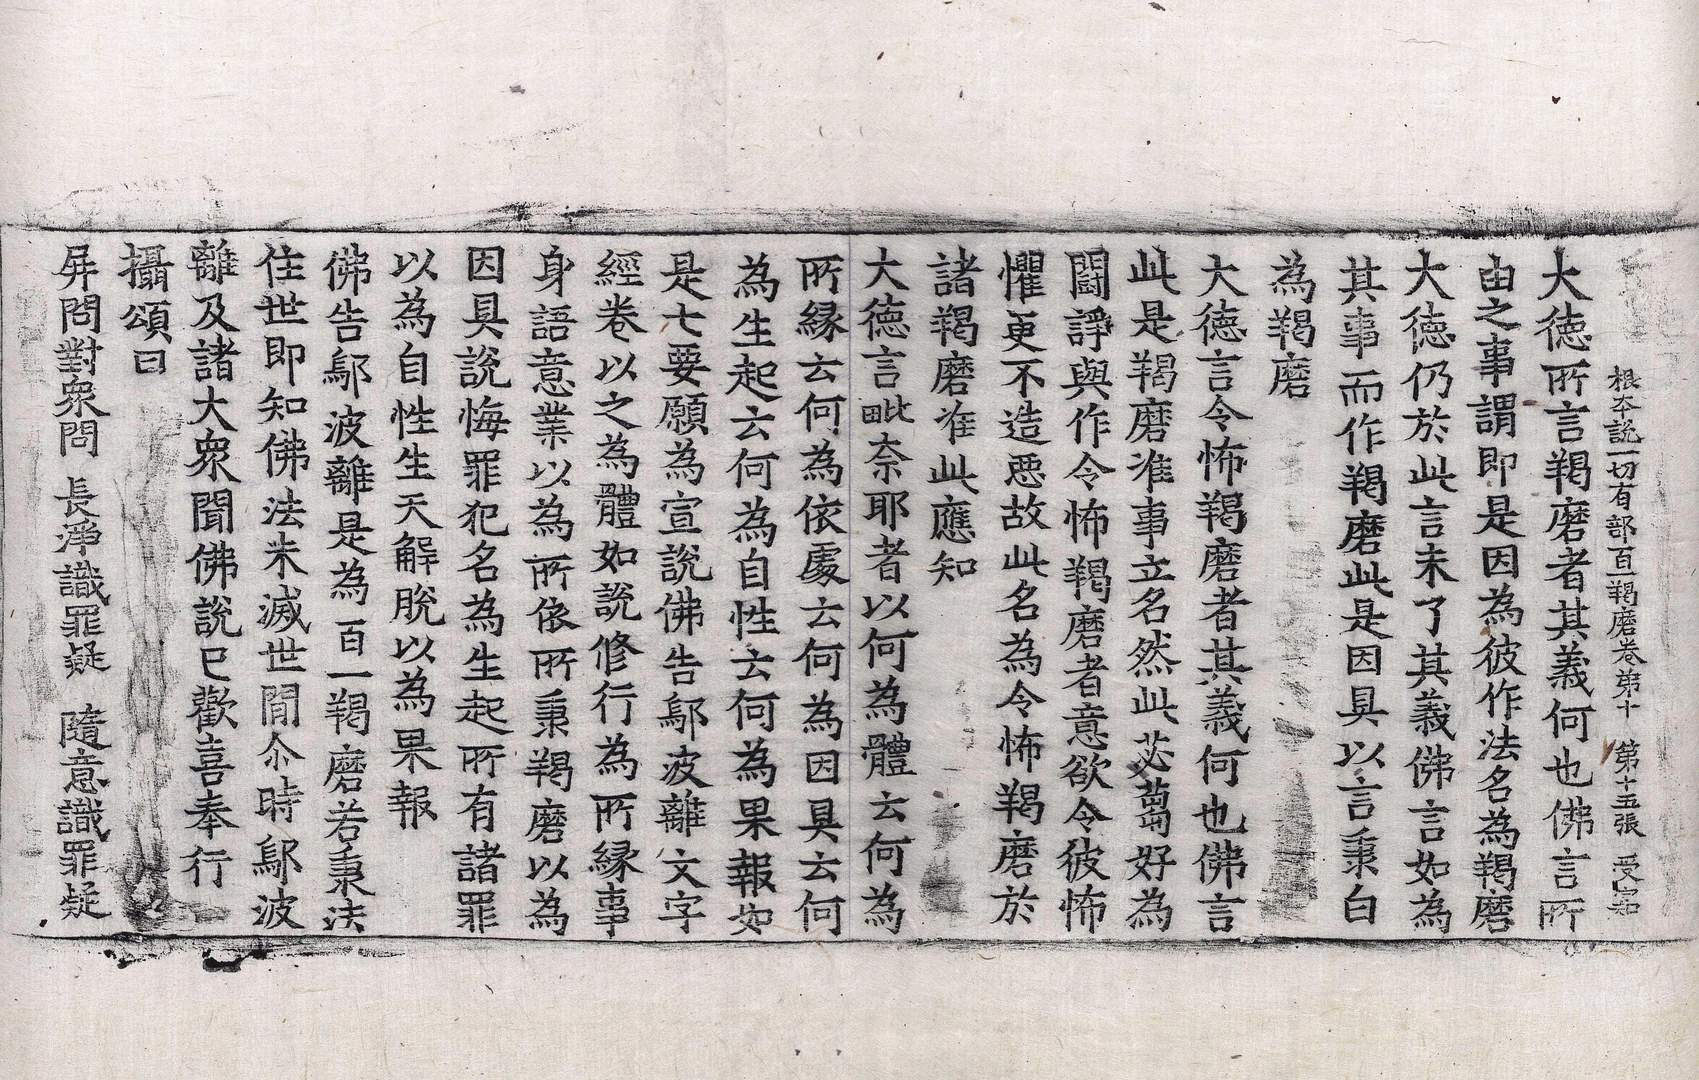 根本說一切有部百一羯磨卷第十 第十五張 受
大德所言羯磨者其義何也佛言所
由之事謂即是因為彼作法名為羯磨
大德仍於此言未了其義佛言如為
其事而作羯磨此是因具以言秉白
為羯磨
大德言令怖羯磨者其義何也佛言
此是羯磨准事立名然此苾蒭好為
鬪諍與作令怖羯磨者意欲令彼怖
懼更不造惡故此名為令怖羯磨於
諸羯磨准此應知
大德言毗奈耶者以何為體云何為
所緣云何為依處云何為因具云何
為生起云何為自性云何為果報如
是七要願為宣說佛告鄔波離文字
經卷以之為體如說修行為所緣事
身語意業以為所依所秉羯磨以為
因具說悔罪犯名為生起所有諸罪
以為自性生天解脫以為果報
佛告鄔波離是為百一羯磨若秉法
住世即知佛法未滅世間尒時鄔波
離及諸大衆聞佛說已歡喜奉行
攝頌曰
屏問對衆問 長淨識罪疑 隨意識罪疑